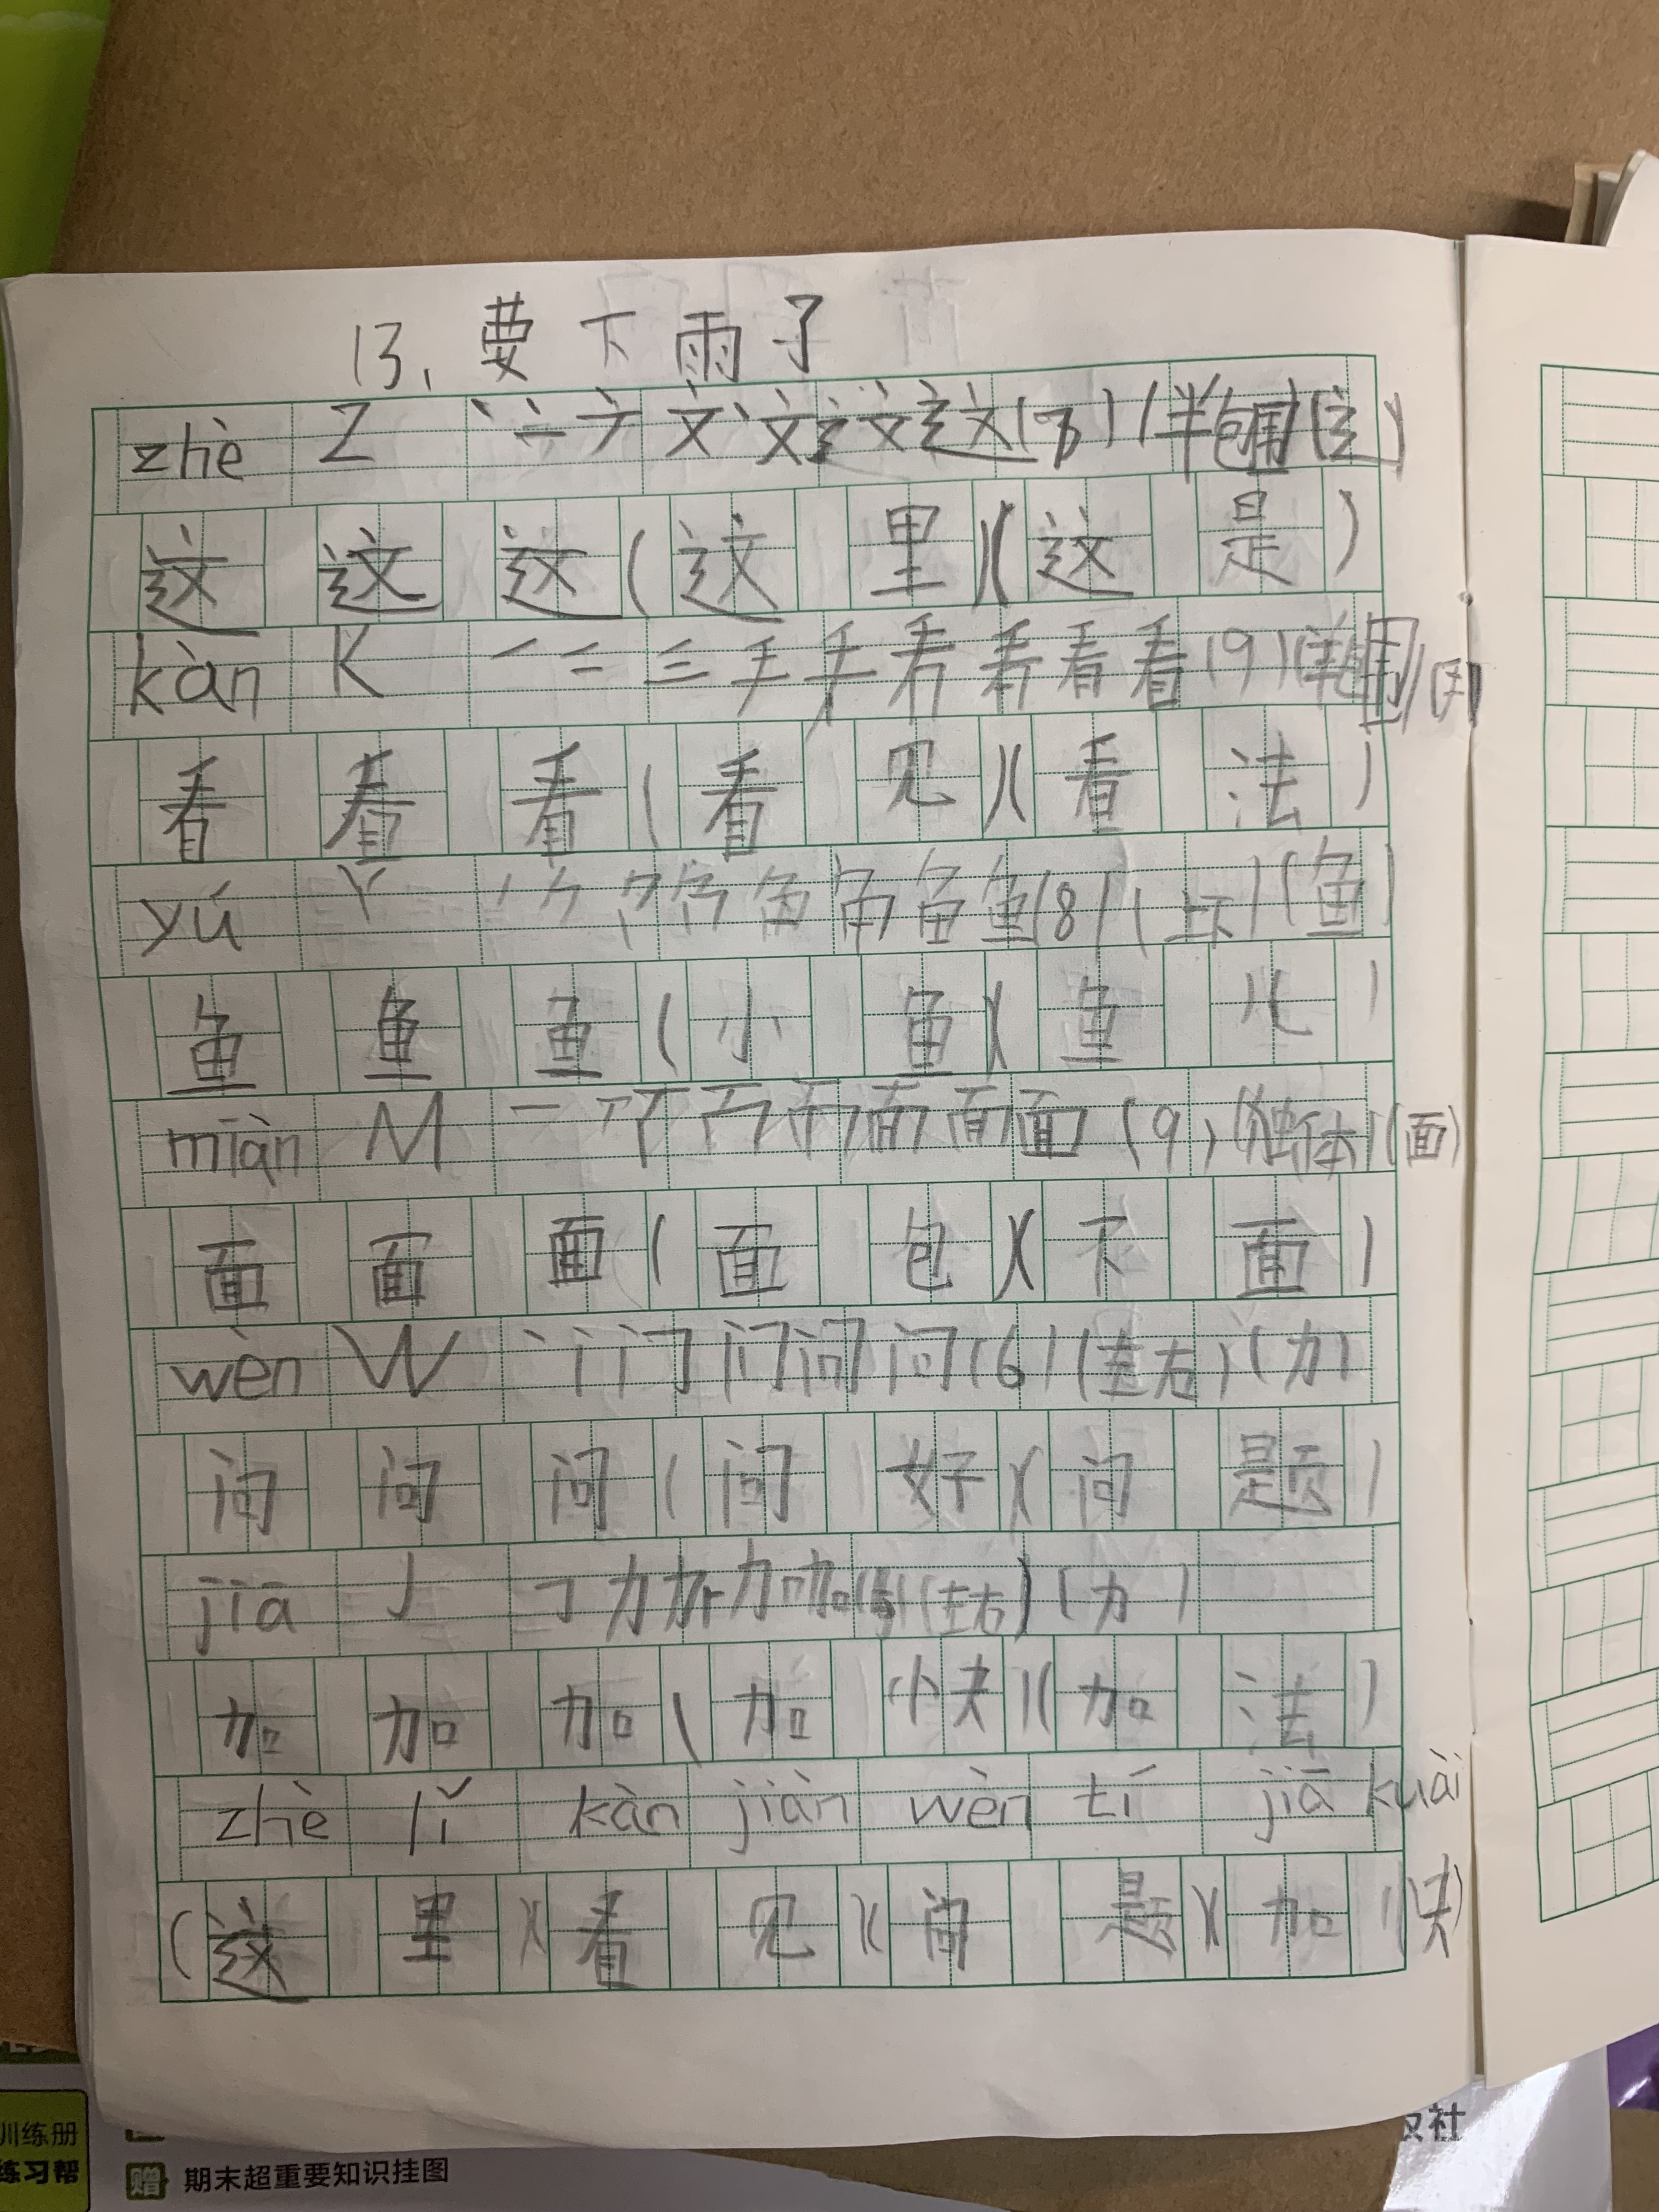 13、要下雨了
zhè Z 丶 亠 ナ 文 文 这 这 (7) (半包围) (辶)
这 这 这 (这 里) (这 是)
kàn K 一 二 三 手 手 看 看 看 看 (9) (半包围) (目)
看 看 看 (看 见) (看 法)
yú Y 鱼 (8) (上下) (鱼)
鱼 鱼 鱼 (小 鱼) (鱼 儿)
miàn M 一 丆 面 面 (9) (独体) (面)
面 面 面 (面 包) (下 面)
wèn W 丶 门 问 问 (6) (左右) (力)
问 问 问 (问 好) (问 题)
jiā J 力 加 加 (5) (左右) (力)
加 加 加 (加 快) (加 法)
zhè lǐ kàn jiàn wèn tí jiā kuài
(这 里) (看 见) (问 题) (加 快)
训练册
练习帮
赠 期末超重要知识挂图
社